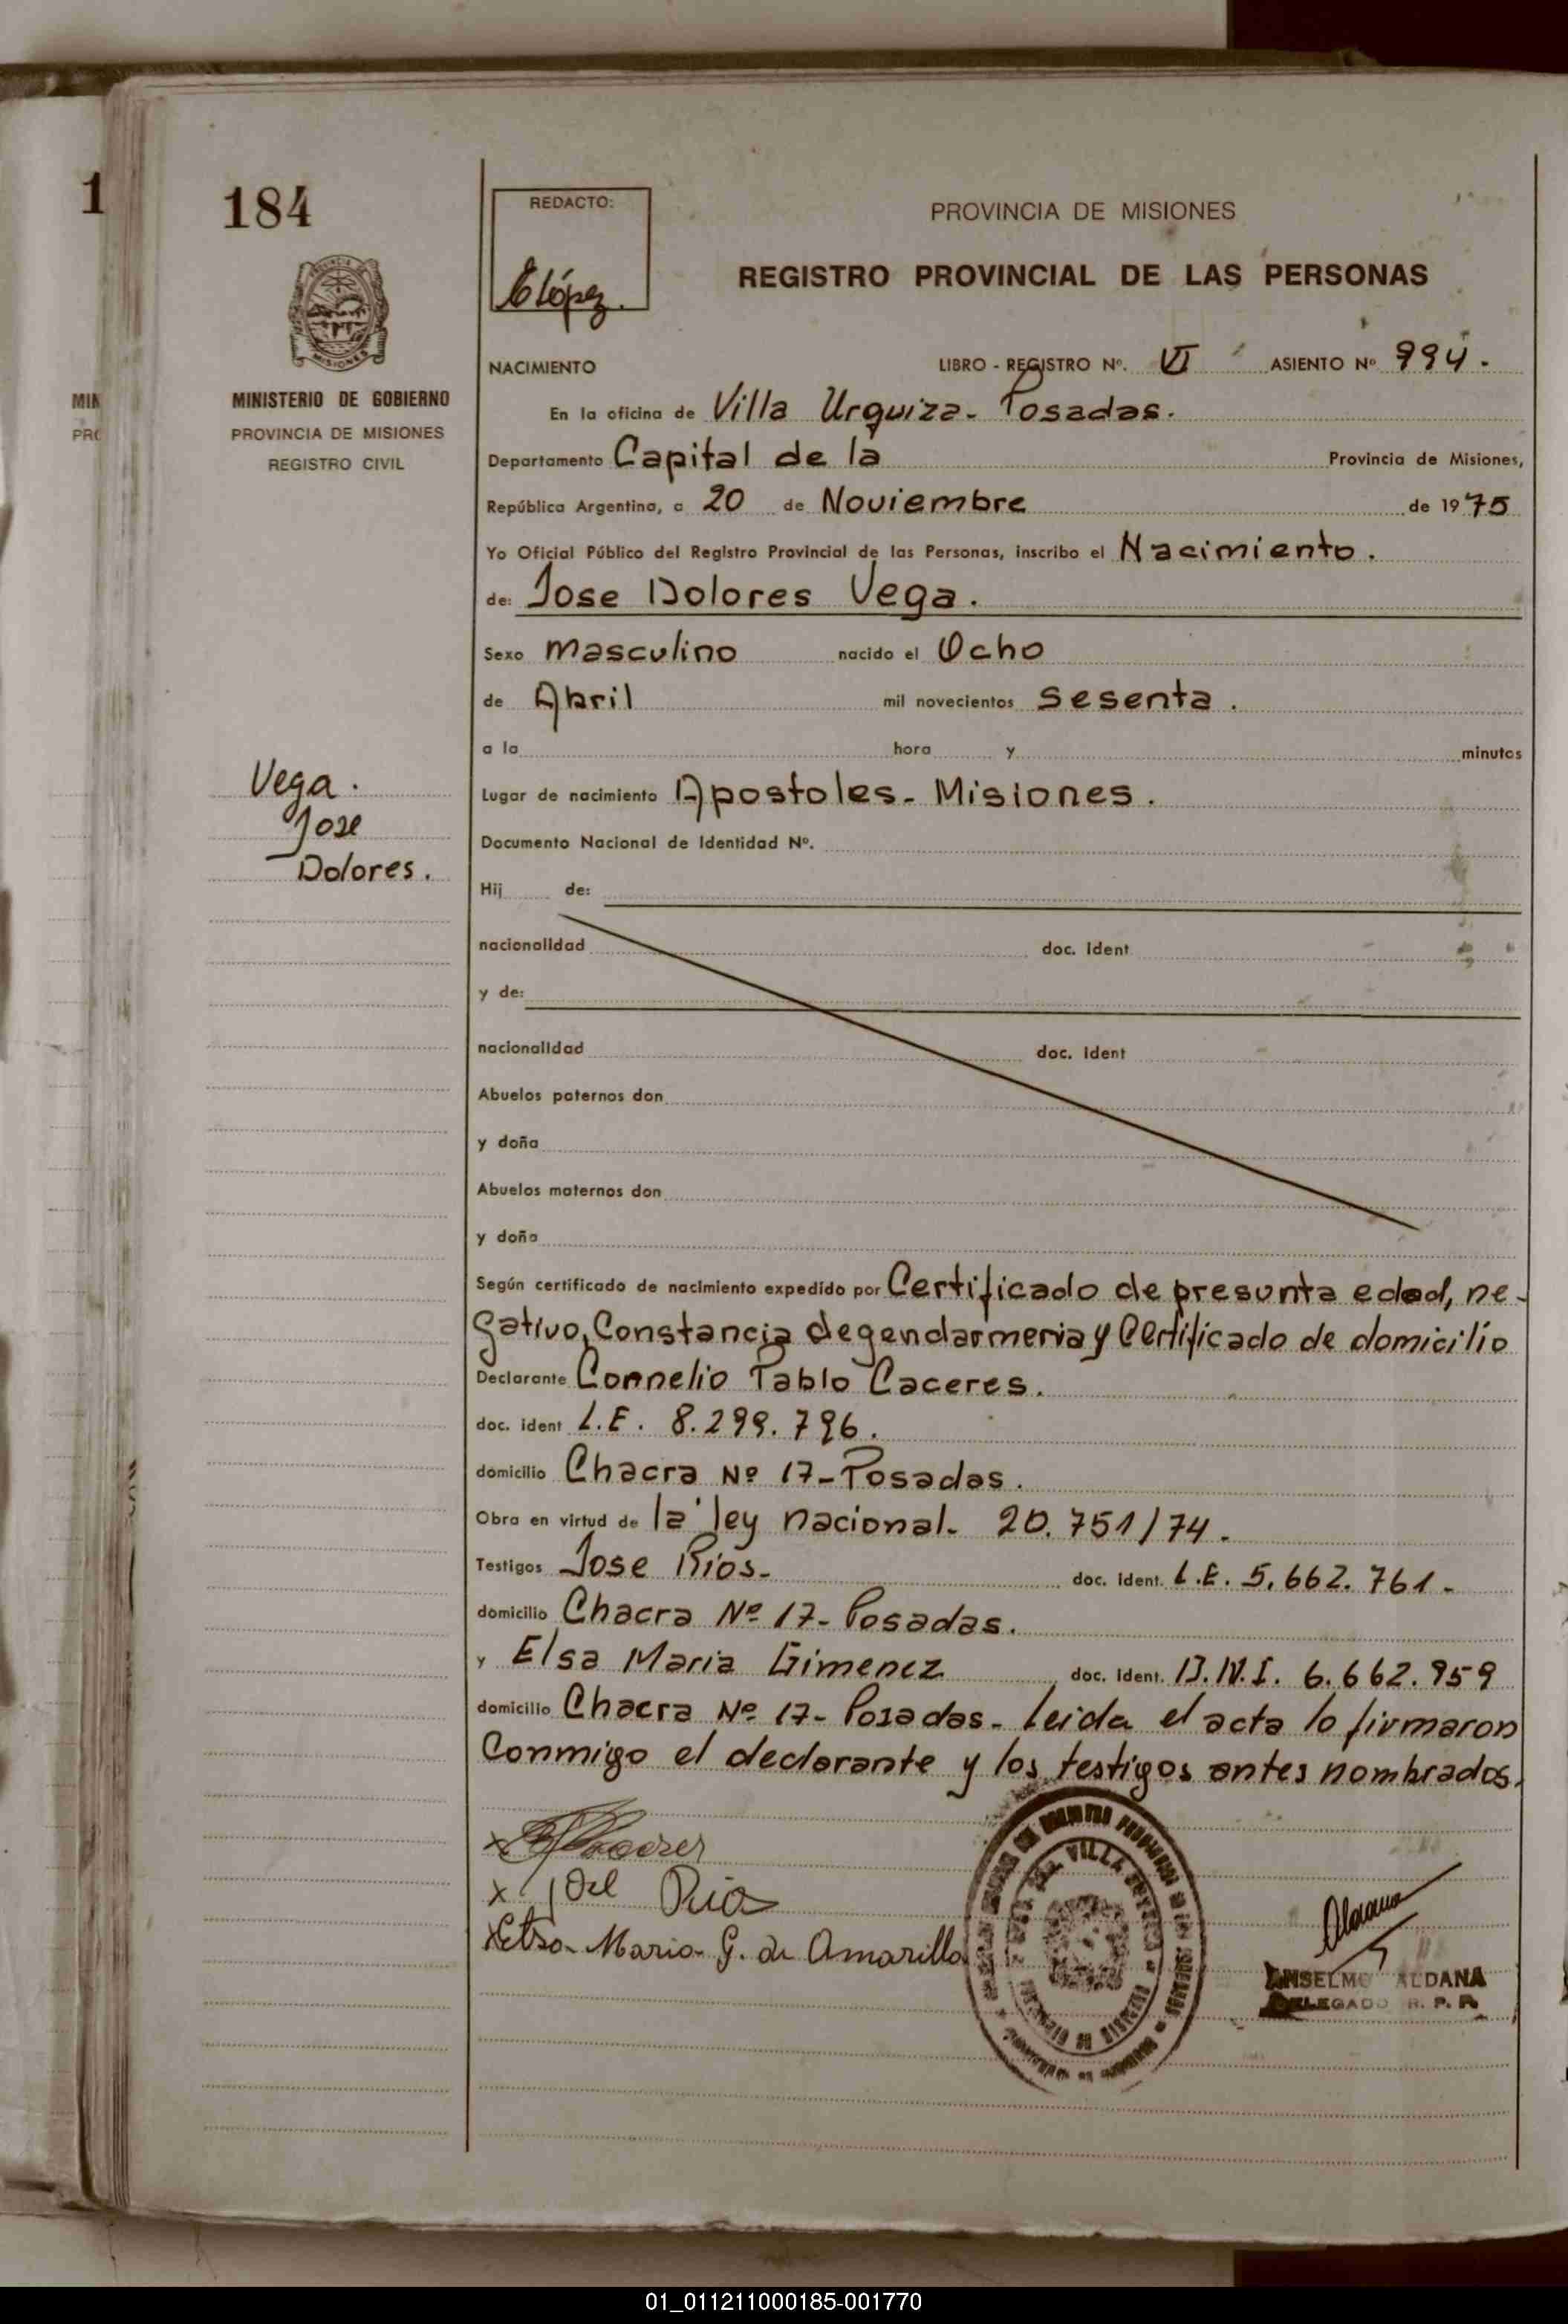 1
184
MIN
PRO
MINISTERIO DE GOBIERNO
PROVINCIA DE MISIONES
REGISTRO CIVIL
Vega.
Jose
Dolores.
REDACTO:
López.
PROVINCIA DE MISIONES
REGISTRO PROVINCIAL DE LAS PERSONAS
NACIMIENTO LIBRO - REGISTRO Nº. VI ASIENTO Nº 994.
En la oficina de Villa Urquiza - Posadas.
Departamento Capital de la Provincia de Misiones,
República Argentina, a 20 de Noviembre de 1975
Yo Oficial Público del Registro Provincial de las Personas, inscribo el Nacimiento.
de: Jose Dolores Vega.
Sexo masculino nacido el Ocho
de Abril mil novecientos sesenta.
a la hora y minutos
Lugar de nacimiento Apostoles - Misiones.
Documento Nacional de Identidad Nº.
Hij de:
nacionalidad doc. ident
y de:
nacionalidad doc. ident
Abuelos paternos don
y doña
Abuelos maternos don
y doña
Según certificado de nacimiento expedido por Certificado de presunta edad, ne-
gativo, Constancia de gendarmeria y Certificado de domicilio
Declarante Cornelio Pablo Caceres.
doc. ident L.E. 8.299.796.
domicilio Chacra Nº 17 - Posadas.
Obra en virtud de la ley nacional - 20.751/74 -
Testigos Jose Rios - doc. ident. L.E. 5.662.761 -
domicilio Chacra Nº 17 - Posadas.
y Elsa Maria Gimenez doc. ident. D.N.I. 6.662.959
domicilio Chacra Nº 17 - Posadas - leida el acta lo firmaron
Conmigo el declarante y los testigos antes nombrados.
x
x José Rio
x Elsa Maria G. de Amarilla
VILLA
Aldana
ANSELMO ALDANA
DELEGADO R. P. P.
01_011211000185-001770